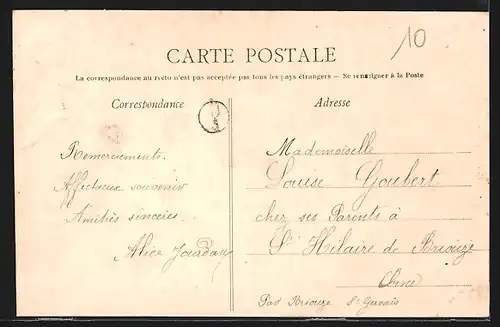 10
CARTE POSTALE
La correspondance au recto n'est pas acceptée par tous les pays étrangers — Se renseigner à la Poste
Correspondance
Adresse
Remerciements.
Affectueux souvenir
Amitiés sincères.
Alice Jourdan
Mademoiselle
Louise Goubert
chez ses Parents à
St Hilaire de Briouze
Orne
Par Briouze St Gervais